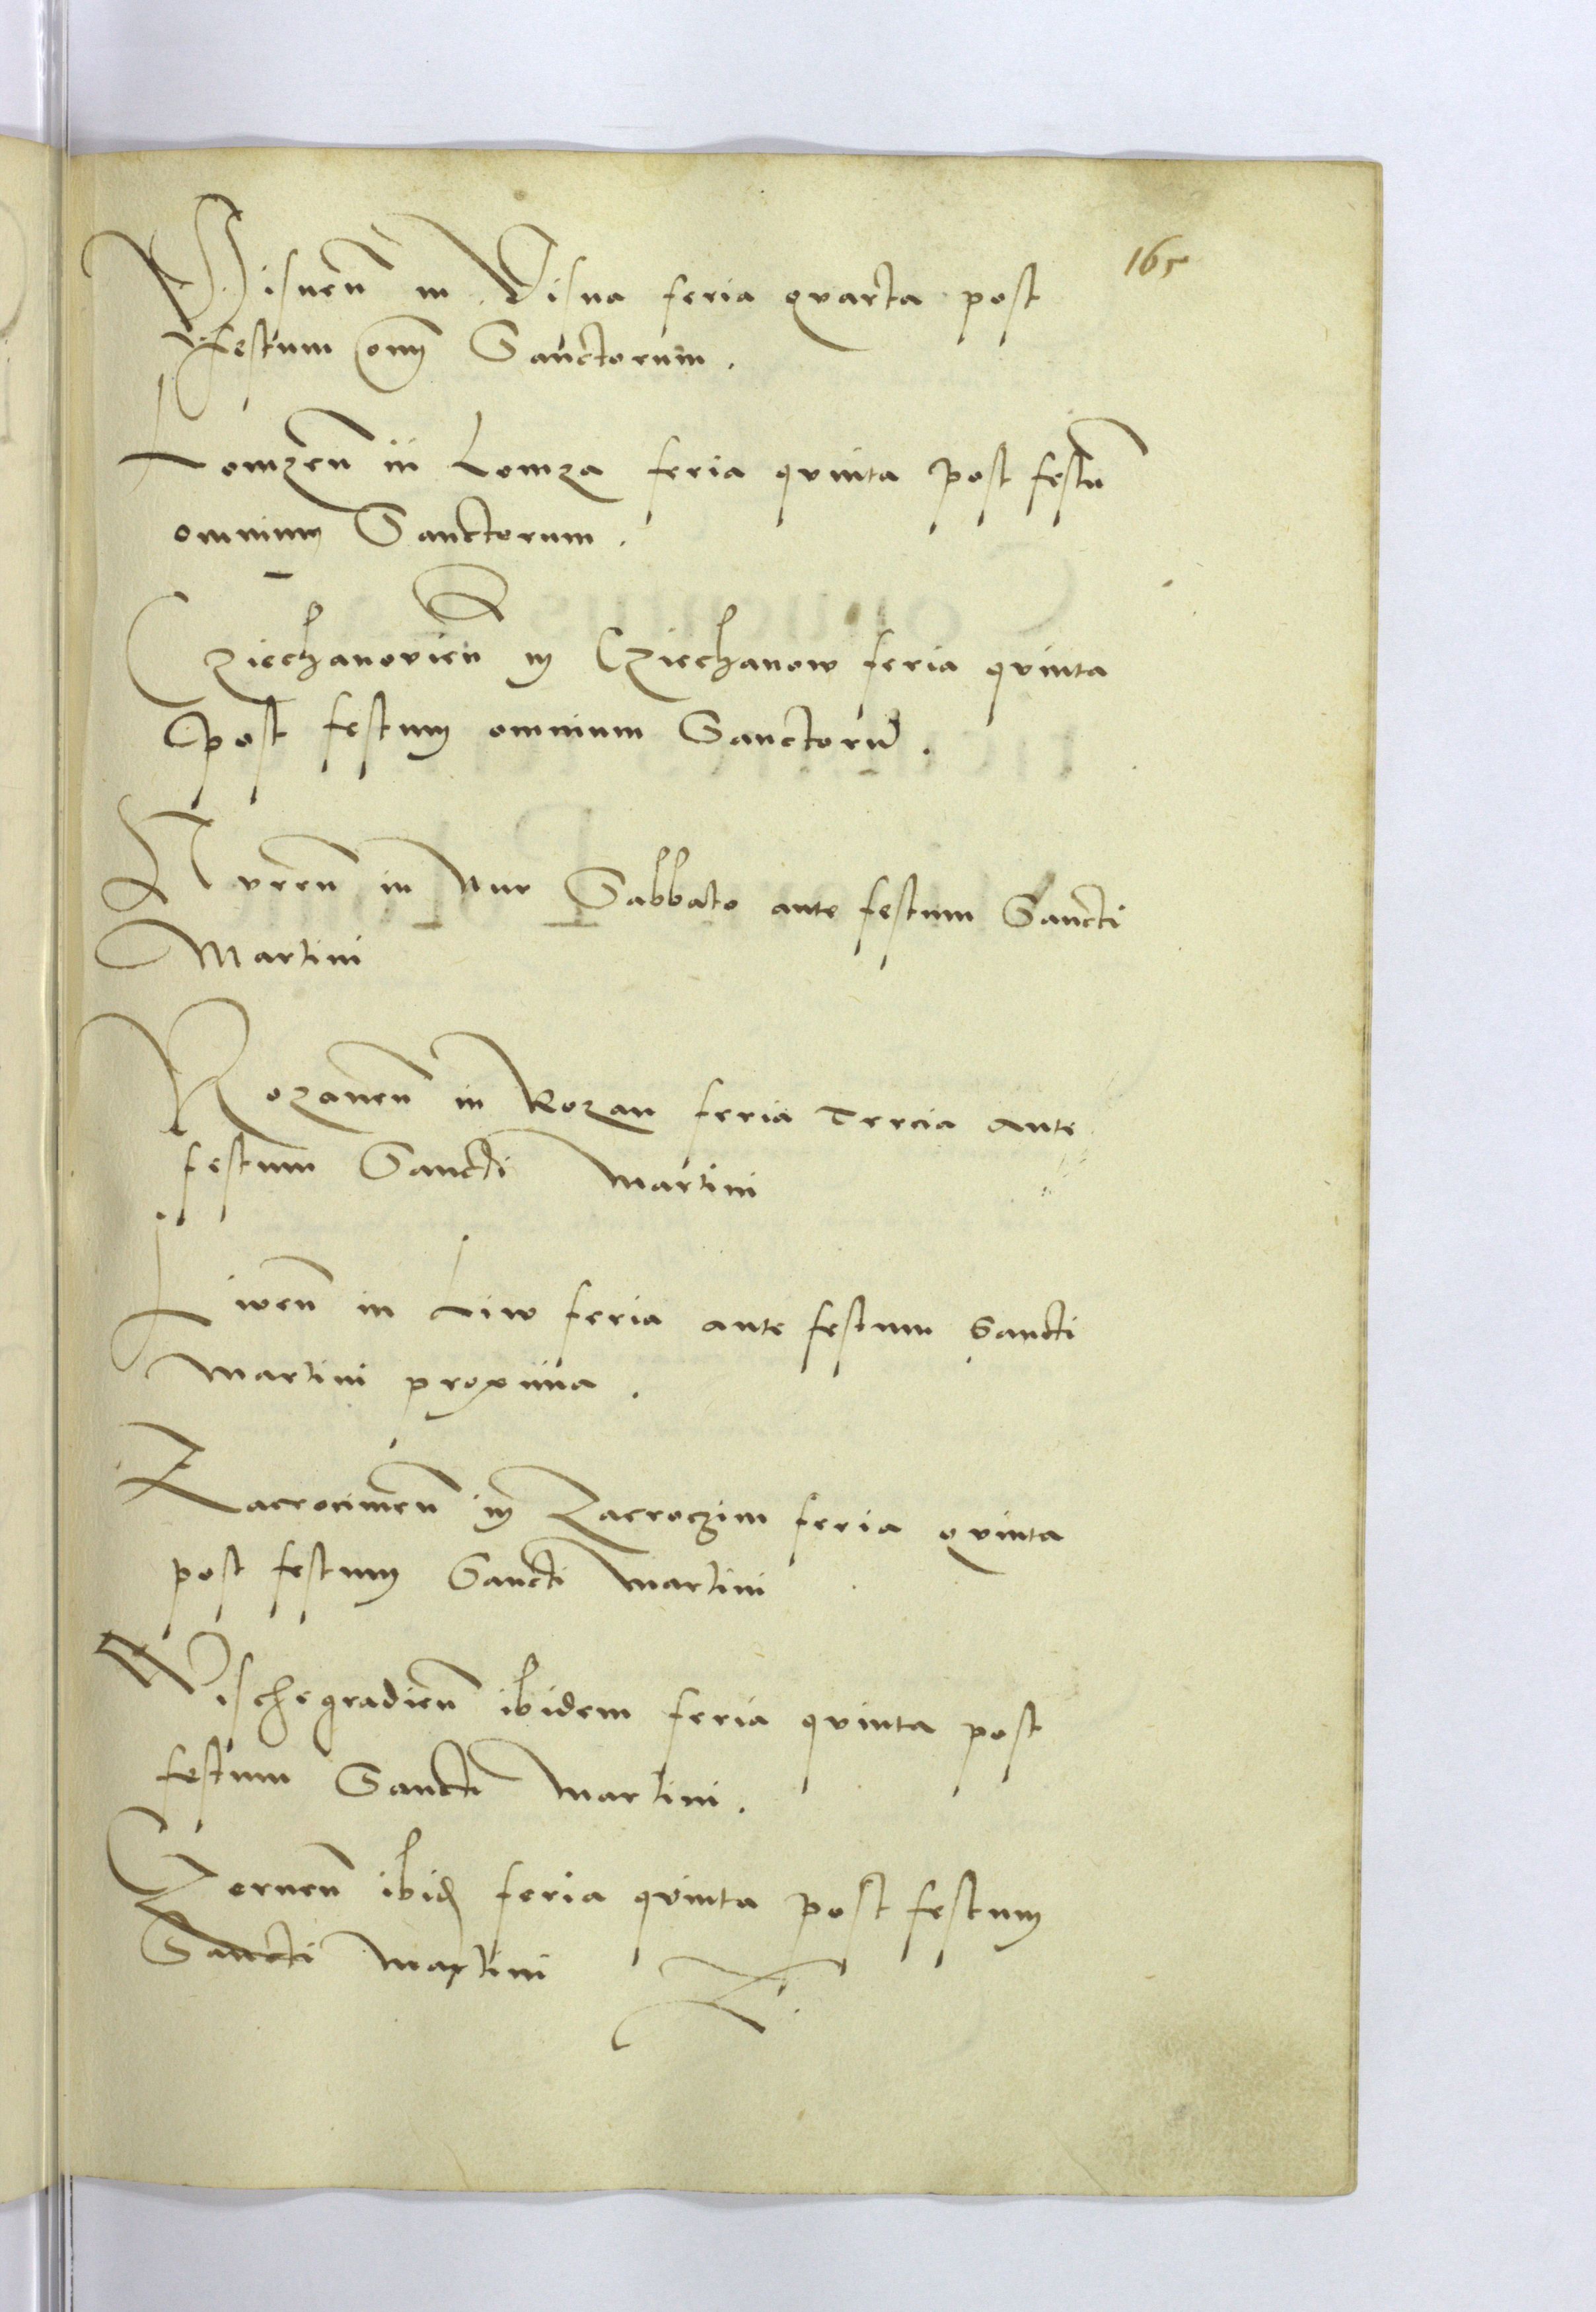 165
Visnen̄ in Visna feria quarta post
festum om̄ Sanctorum.
Lomzen̄ in Lomza feria quinta post festū
omnium Sanctorum.
Cziechanovien̄ in Cziechanow feria quinta
post festum omnium Sanctorū.
Nuren̄ in Nur Sabbato ante festum Sancti
Martini
Rozanen̄ in Rozan feria Tercia ante
festum Sancti Martini
Liwen̄ in Liw feria ante festum Sancti
Martini proxima.
Zacrocimen̄ in Zacroczim feria quinta
post festum Sancti Martini
Wischegradien̄ ibidem feria quinta post
festum Sancti Martini.
Czernen̄ ibid feria quinta post festum
Sancti Martini